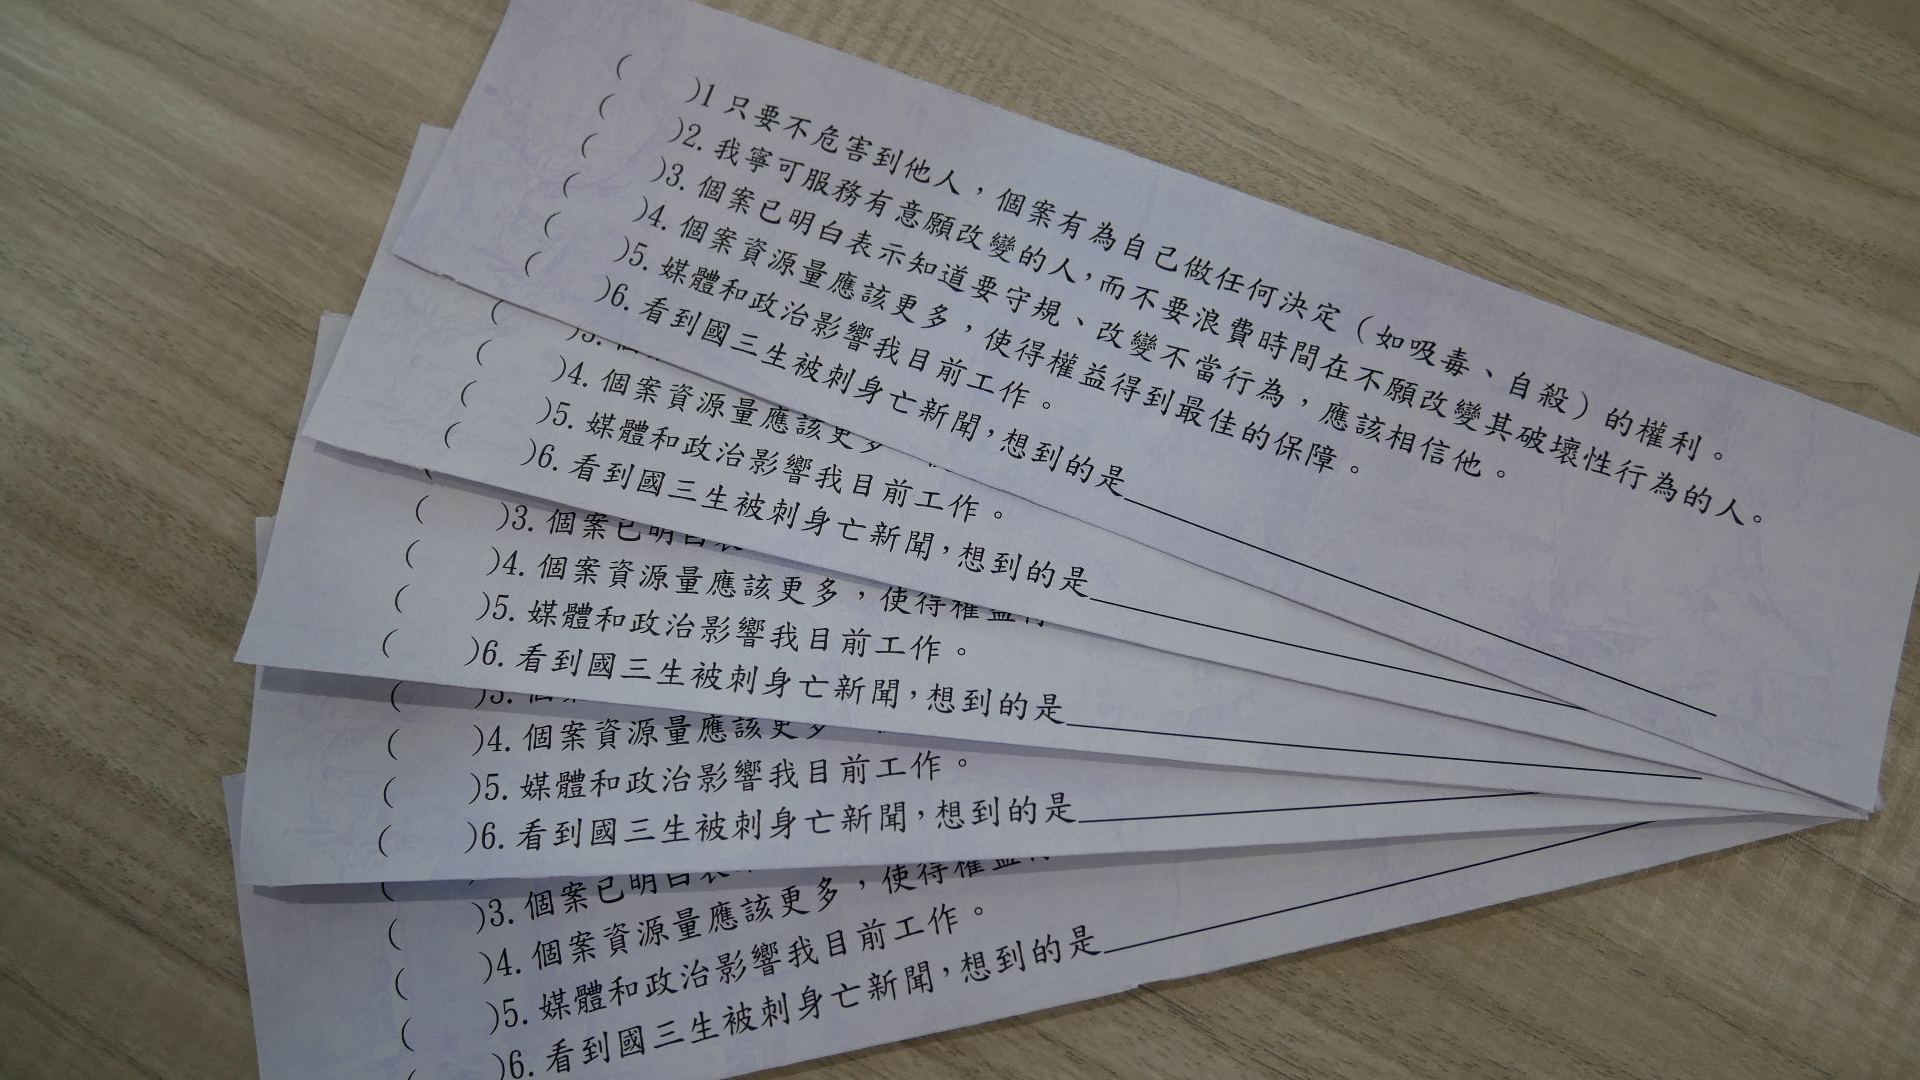 (　　)1 只要不危害到他人，個案有為自己做任何決定（如吸毒、自殺）的權利。
(　　)2. 我寧可服務有意願改變的人，而不要浪費時間在不願改變其破壞性行為的人。
(　　)3. 個案已明白表示知道要守規、改變不當行為，應該相信他。
(　　)4. 個案資源量應該更多，使得權益得到最佳的保障。
(　　)5. 媒體和政治影響我目前工作。
(　　)6. 看到國三生被刺身亡新聞，想到的是__________
(　　)3. 個
(　　)4. 個案資源量應該更多
(　　)5. 媒體和政治影響我目前工作。
(　　)6. 看到國三生被刺身亡新聞，想到的是__________
(　　)3. 個案已明白表
(　　)4. 個案資源量應該更多，使得權益得
(　　)5. 媒體和政治影響我目前工作。
(　　)6. 看到國三生被刺身亡新聞，想到的是__________
(　　)3. 個案
(　　)4. 個案資源量應該更多
(　　)5. 媒體和政治影響我目前工作。
(　　)6. 看到國三生被刺身亡新聞，想到的是__________
(　　)3. 個案已明白表
(　　)4. 個案資源量應該更多，使得權益得
(　　)5. 媒體和政治影響我目前工作。
(　　)6. 看到國三生被刺身亡新聞，想到的是__________